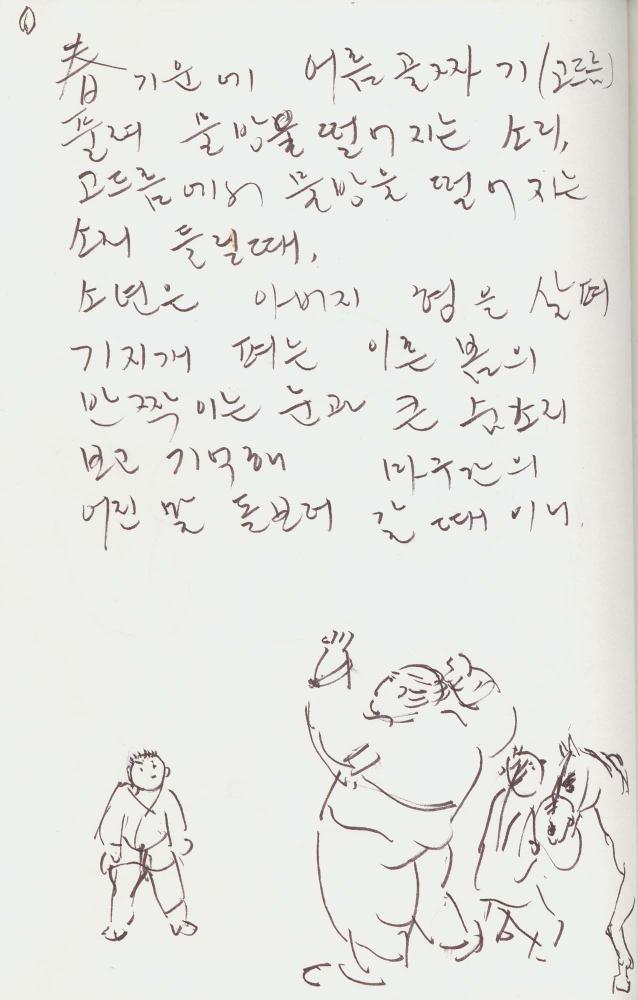 春 기운에 어름골짜기(고드름)
풀려 물방울 떨어지는 소리,
고드름에서 물방울 떨어지는
소리 들릴때,
소년은 아버지 형을 살펴
기지개 펴는 이른 봄의
반짝이는 눈과 큰 숨소리
보고 기억해 마구간의
어진 말 돌보러 갈 때이니.